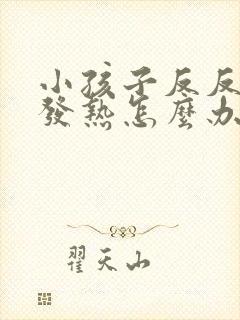 小孩子反反
發熱怎麼办
翟天山